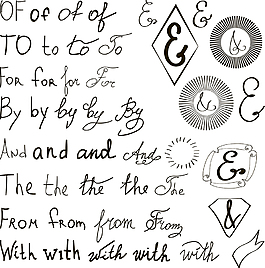 OF of of of of & &
TO to to To &
FOR for for For & &
By by by by By
And and and and &
The the the the The
FROM from from From &
With with with with with